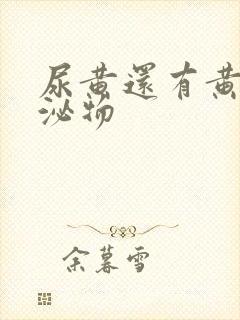 尿黄還有黄
泌物
余暮雪